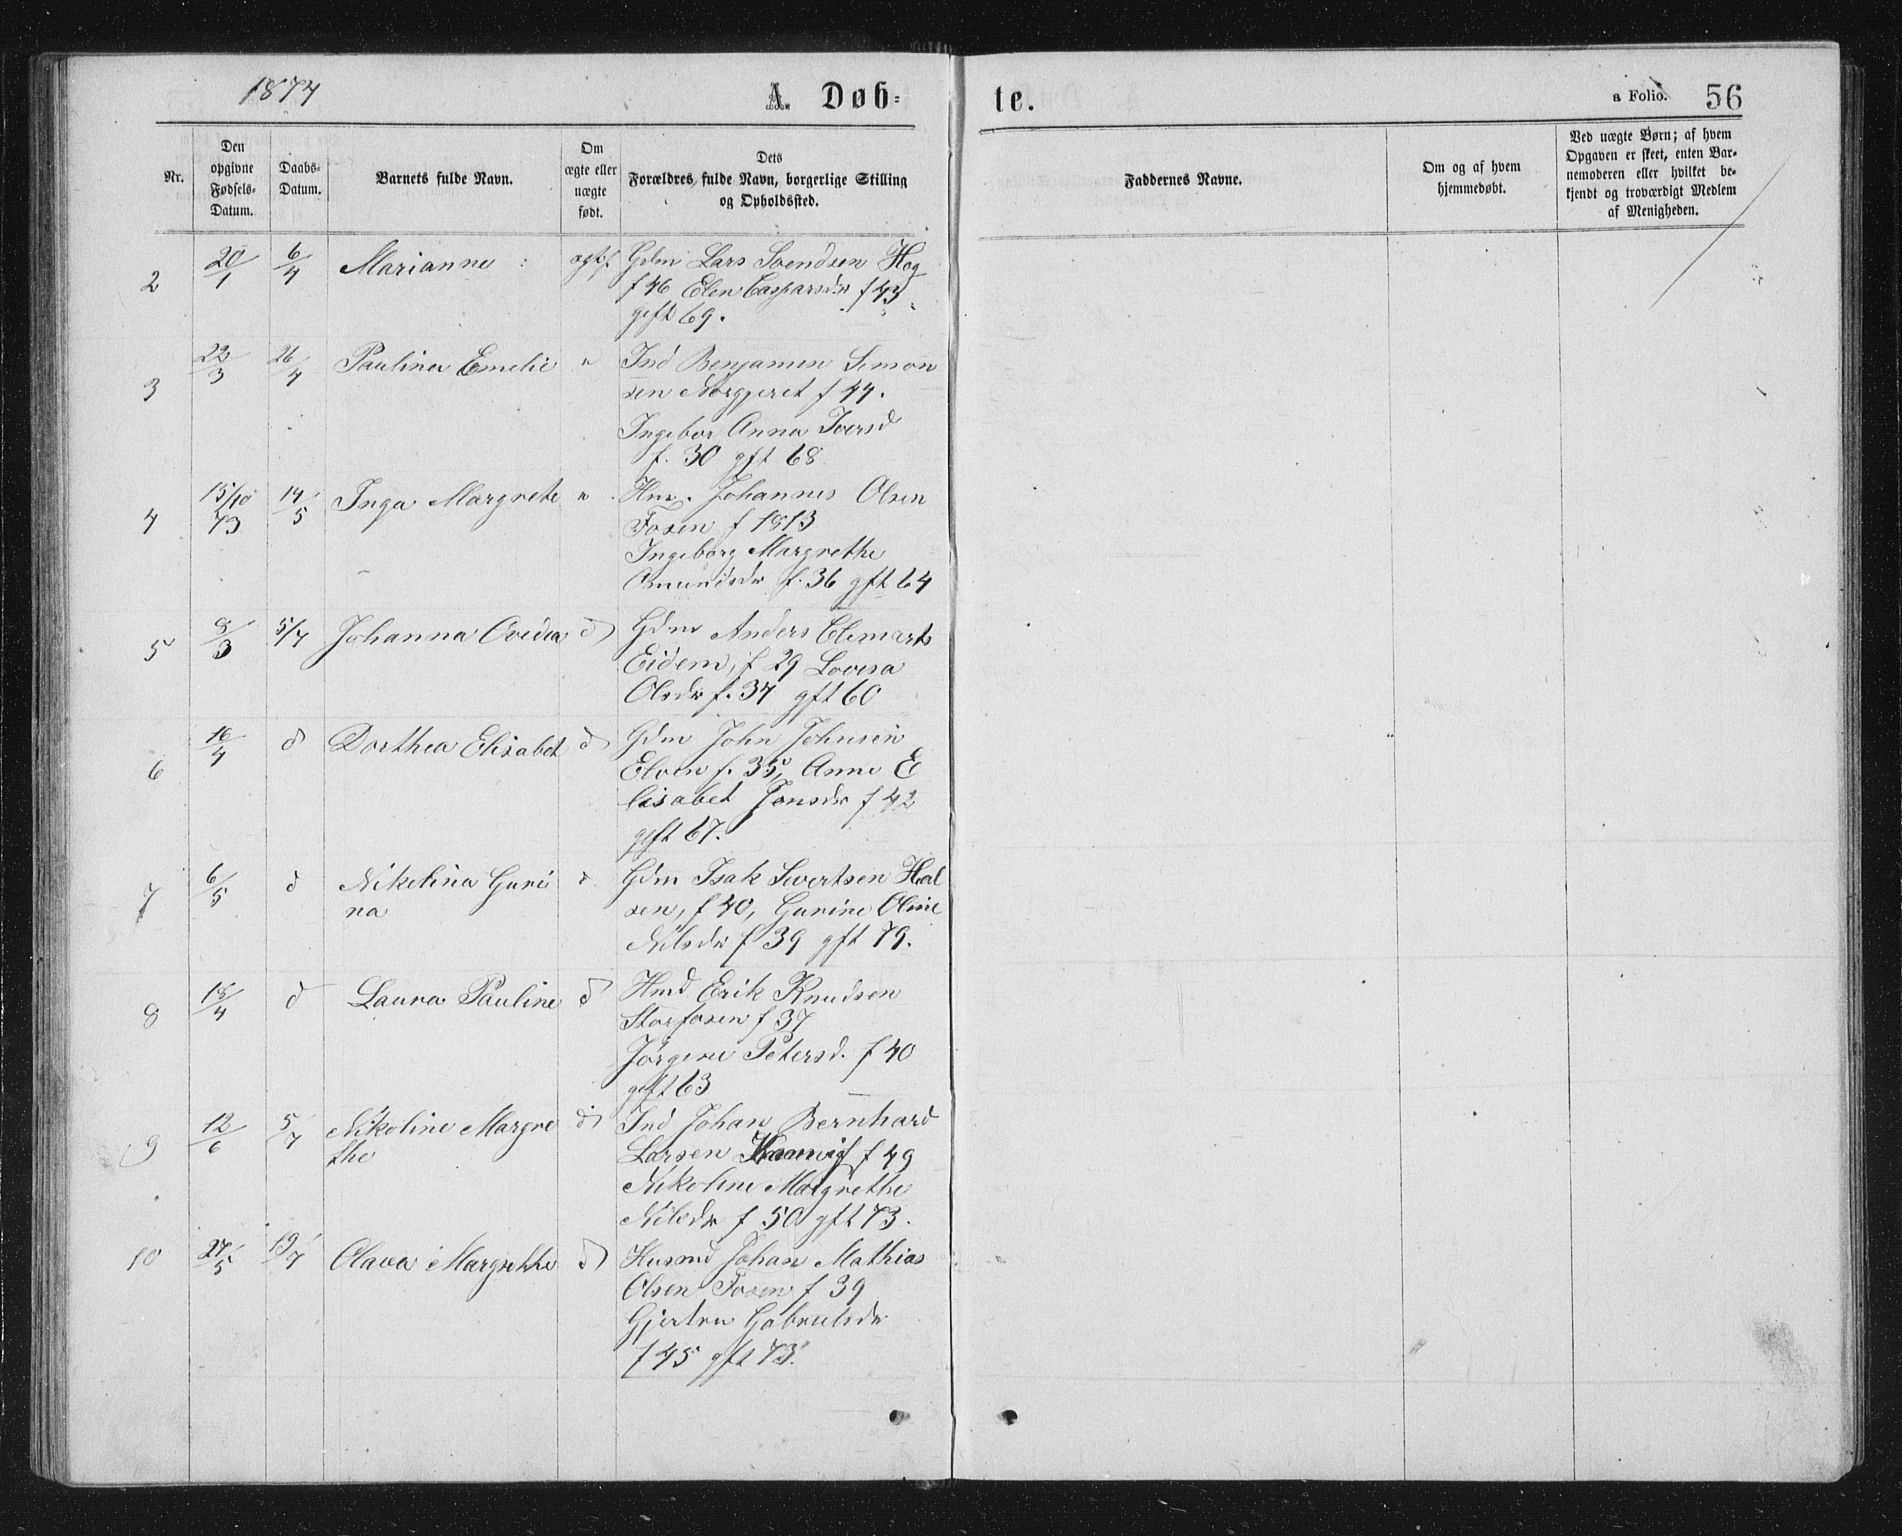 1874
A Døb-
te.
a Folio. 56
Nr.
Den opgivne Fødsels-Datum.
Daabs-Datum.
Barnets fulde Navn.
Om ægte eller uægte født.
Dets Forældres fulde Navn, borgerlige Stilling og Opholdssted.
Faddernes Navne.
Om og af hvem hjemmedøbt.
Ved uægte Børn; af hvem Opgaven er skeet, enten Barnemoderen eller hvilket bekjendt og troværdigt Medlem af Menigheden.
2 20/1 6/4 Marianne Gdm Lars Svendsen Hog
f 46 Elen Caspersdr f 43
gift 69.
3 22/3 26/4 Paulina Emelie " Ind Benjamin Simon
sen Norgjeret f 44.
Ingebor Anna Iversd
f. 30 gft 68
4 15/10 73 14/5 Inga Margrete " Hm. Johannes Olsen
Fosen f 1813
Ingeborg Margrethe
Amundsdr f. 36 gft 64
5 8/3 5/7 Johanna Ovedia d Gdm Anders Clemets
Eidem, f 29 Lovisa
Olsdr f. 34 gft 60
6 16/4 d Dorthea Elisabet d Gdm John Johnsen
Elven f. 35, Anne E
lisabet Jonsdr f 42
gift 67.
7 6/5 d Nikelina Guri
na d Gdm Isak Sivertsen Hal
sen, f 40, Gurine Oline
Nilsdr f 39 gft 79.
8 18/4 d Laura Pauline d Hmd Erik Knudsen
Storfosen f 37
Jørgine Petersd. f 40
gift 63
9 12/6 5/7 Nikoline Margre
the d Ind Johan Bernhard
Larsen f 49
Nikoline Margrethe
Nilsdr f 50 gft 73.
10 27/5 19/7 Olava Margrethe d Husmd Johan Mathias
Olsen Fosen f 39
Gjertru Gabrielsdr
f 45 gft 73.